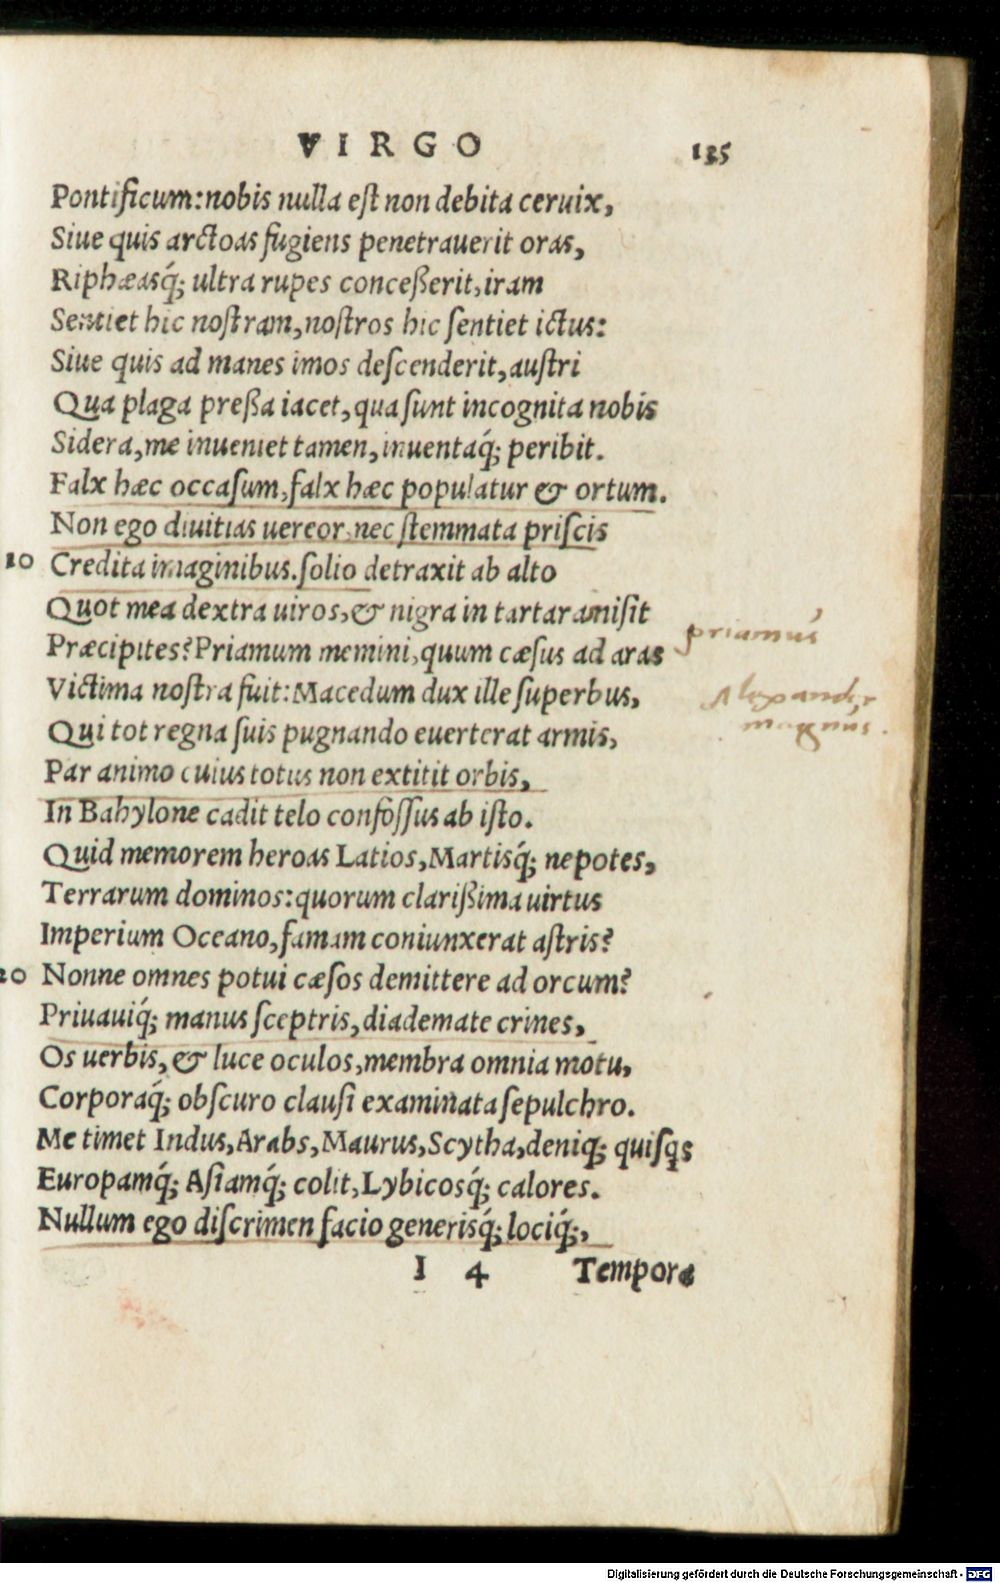 VIRGO 135
Pontificum: nobis nulla est non debita ceruix,
Siue quis arctoas fugiens penetrauerit oras,
Riphæasq́; ultra rupes conceßerit, iram
Sentiet hic nostram, nostros hic sentiet ictus:
Siue quis ad manes imos descenderit, austri
Qua plaga preßa iacet, qua sunt incognita nobis
Sidera, me inueniet tamen, inuentaq́; peribit.
Falx hæc occasum, falx hæc populatur & ortum.
Non ego diuitias uereor, nec stemmata priscis
10 Credita imaginibus. solio detraxit ab alto
Quot mea dextra uiros, & nigra in tartara misit
Præcipites? Priamum memini, quum cæsus ad aras
priamus
Victima nostra fuit: Macedum dux ille superbus,
Alexander
Qui tot regna suis pugnando euerterat armis,
magnus.
Par animo cuius totus non extitit orbis,
In Babylone cadit telo confossus ab isto.
Quid memorem heroas Latios, Martisq́; nepotes,
Terrarum dominos: quorum clarißima uirtus
Imperium Oceano, famam coniunxerat astris?
20 Nonne omnes potui cæsos demittere ad orcum?
Priuauiq́; manus sceptris, diademate crines,
Os uerbis, & luce oculos, membra omnia motu,
Corporaq́; obscuro clausi examinata sepulchro.
Me timet Indus, Arabs, Maurus, Scytha, deniq; quisqs
Europamq́; Asiamq́; colit, Lybicosq́; calores.
Nullum ego discrimen facio generisq́; lociq́;,
I 4 Tempora
Digitalisierung gefördert durch die Deutsche Forschungsgemeinschaft - DFG